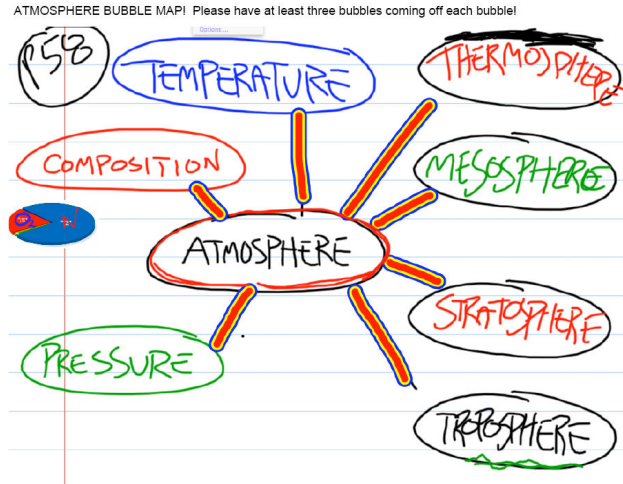 ATMOSPHERE BUBBLE MAP!  Please have at least three bubbles coming off each bubble!
Options ...
p58
TEMPERATURE
THERMOSPHERE
COMPOSITION
MESOSPHERE
O
N
ATMOSPHERE
STRATOSPHERE
PRESSURE
TROPOSPHERE